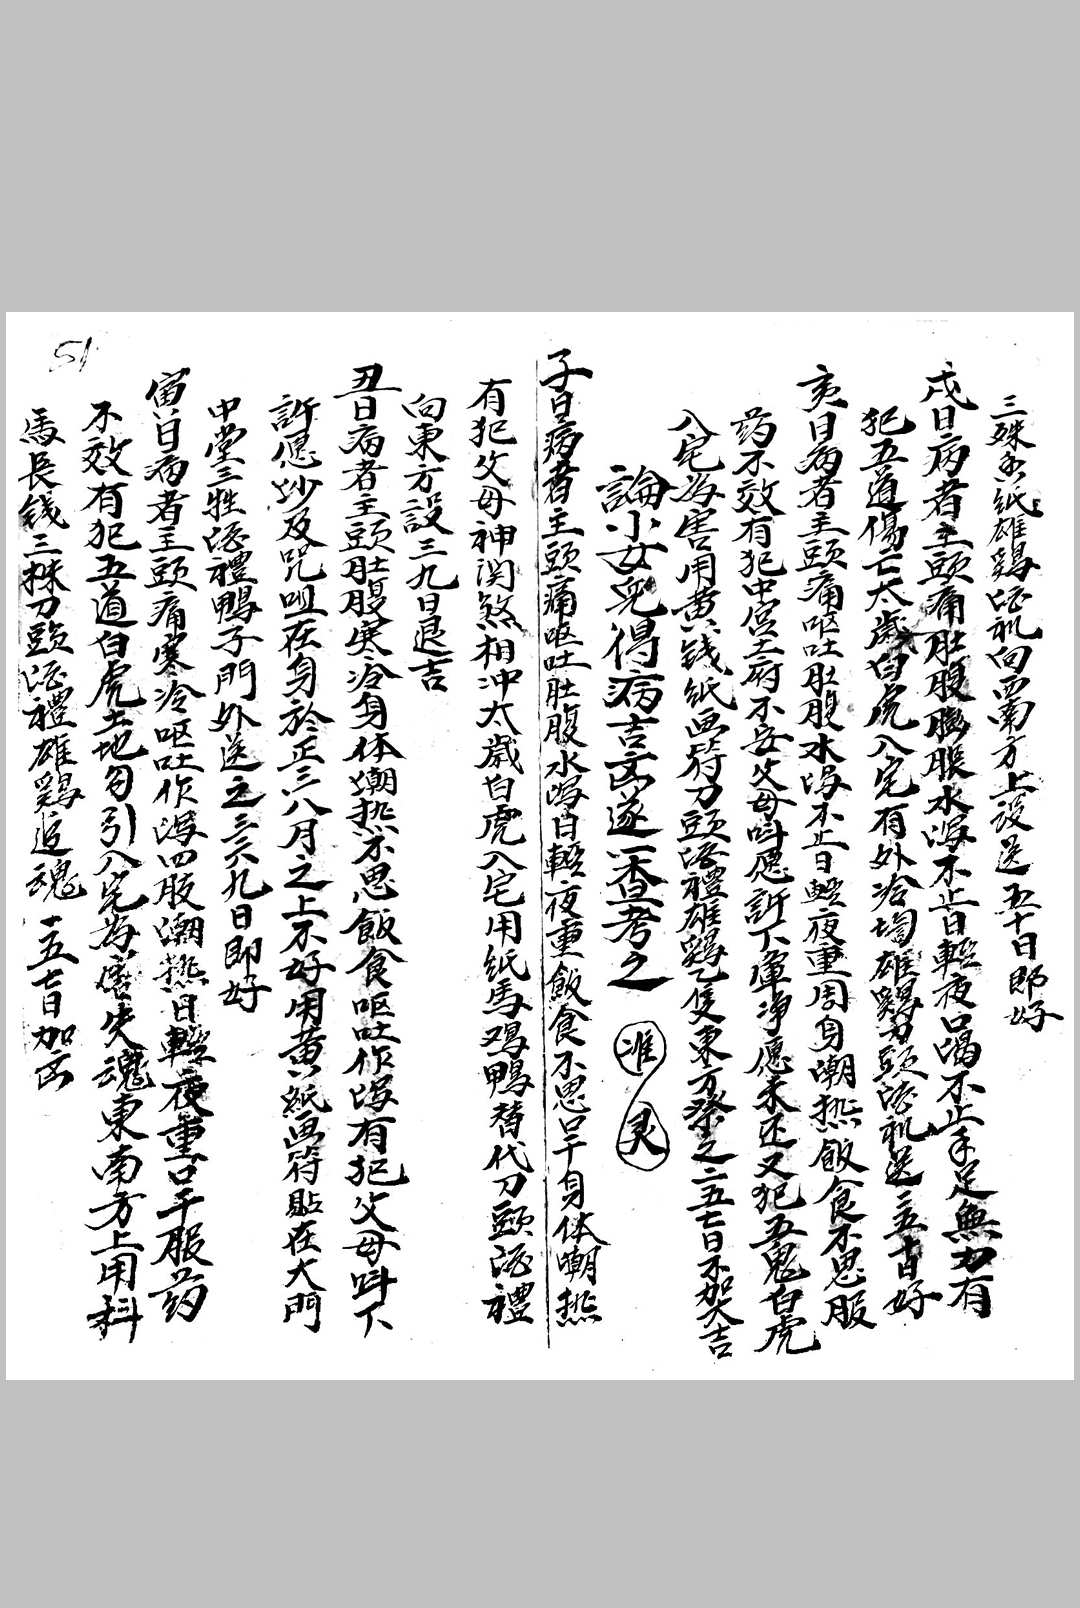 三殊金紙雄鷄酒礼向西南方上設送五十日即好
戌日病者主頭痛肚腹膨脹水瀉不止日輕夜口渴不止手足無力有
犯五道傷亡太歲白虎入宅有外冷雄鷄刀頭酒礼送三五十日好
亥日病者主頭痛呕吐肚腹水瀉不止日輕夜重周身潮热飯食不思服
药不效有犯中宮土府不安父母呌愿許下葷净愿未还又犯五鬼白虎
入宅為害用黄錢紙画符刀頭酒禮雄鷄乙隻東方祭之二五七日不加大吉
論小女兒得病吉凶逐一查考之 准 灵
子日病者主頭痛呕吐肚腹水瀉日輕夜重飯食不思口干身体潮热
有犯父母神関煞相冲太歲白虎入宅用紙馬鸡鴨替代刀頭酒禮
向東方設三九日退吉
丑日病者主頭肚腹寒冷身体潮热不思飯食呕吐作瀉有犯父母呌下
許愿炒及咒咀在身於正三八月之上不好用黄紙画符貼在大門
中堂三牲酒禮鴨子門外送之三六九日即好
寅日病者主頭痛寒冷呕吐作瀉四肢潮热日輕夜重口干服药
不效有犯五道白虎土地勾引入宅為害失魂東南方上用科
馬長錢三殊刀頭酒禮雄鷄追魂一五七日加凶
51